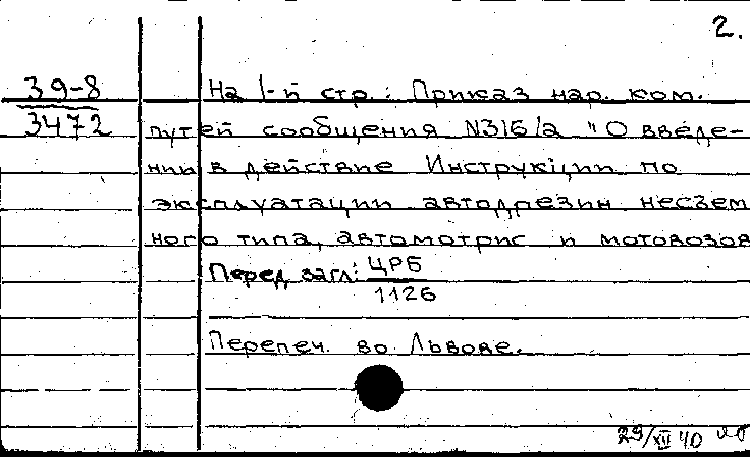 2.
39-8
3472
На 1-й стр.: Приказ нар. ком.
путей сообщения N316/а "О введе-
нии в действие Инструкции по
эксплуатации автодрезин несъем
ного типа, автомотрис и мотовозов
Перед загл: ЦРБ
1126
Перепеч. во Львове.
29/XII 40